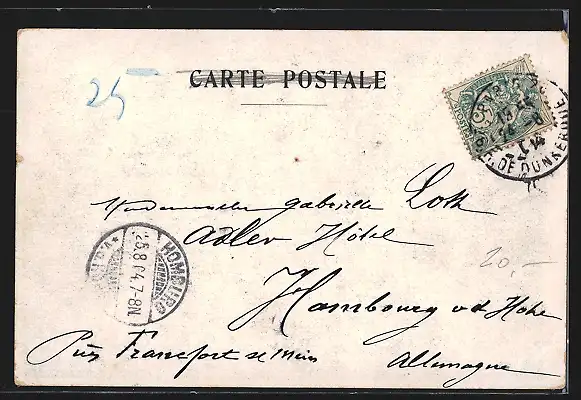 25
CARTE POSTALE
R. DE DUNKERQUE
Mademoiselle Gabrielle Lott
Adler Hôtel
20,-
HOMBURG
25.8.04.7-8N
Hambourg v.d. Hohe
Près Francfort s/ Mein
Allemagne